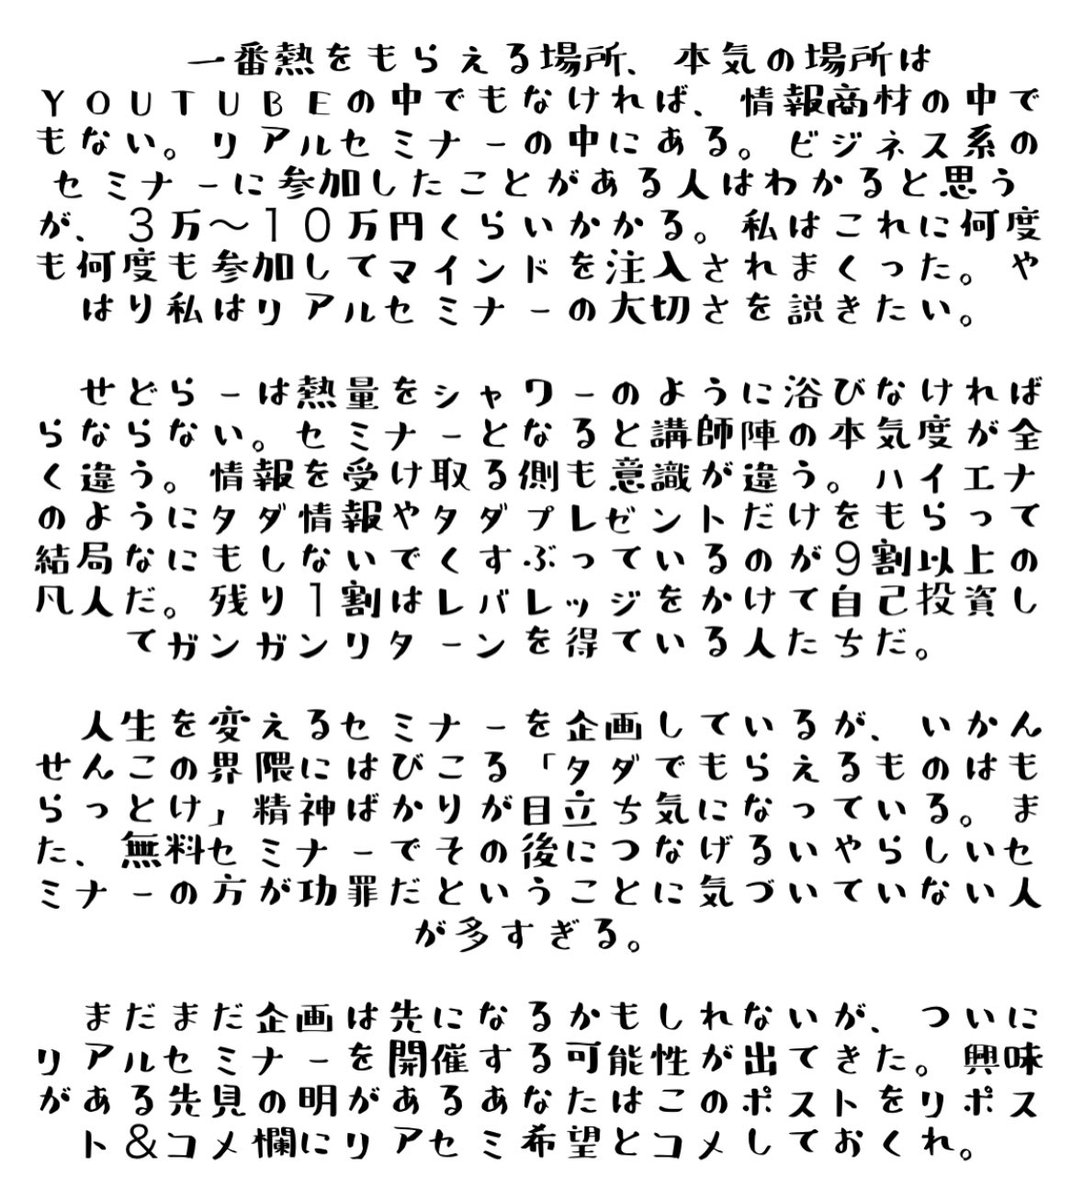 一番熱をもらえる場所、本気の場所は
YOUTUBEの中でもなければ、情報商材の中で
もない。リアルセミナーの中にある。ビジネス系の
セミナーに参加したことがある人はわかると思う
が、3万〜10万円くらいかかる。私はこれに何度
も何度も参加してマインドを注入されまくった。や
はり私はリアルセミナーの大切さを説きたい。
せどらーは熱量をシャワーのように浴びなければ
らならない。セミナーとなると講師陣の本気度が全
く違う。情報を受け取る側も意識が違う。ハイエナ
のようにタダ情報やタダプレゼントだけをもらって
結局なにもしないでくすぶっているのが9割以上の
凡人だ。残り1割はレバレッジをかけて自己投資し
てガンガンリターンを得ている人たちだ。
人生を変えるセミナーを企画しているが、いかん
せんこの界隈にはびこる「タダでもらえるものはも
らっとけ」精神ばかりが目立ち気になっている。ま
た、無料セミナーでその後につなげるいやらしいセ
ミナーの方が功罪だということに気づいていない人
が多すぎる。
まだまだ企画は先になるかもしれないが、ついに
リアルセミナーを開催する可能性が出てきた。興味
がある先見の明があるあなたはこのポストをリポス
ト&コメ欄にリアセミ希望とコメしておくれ。